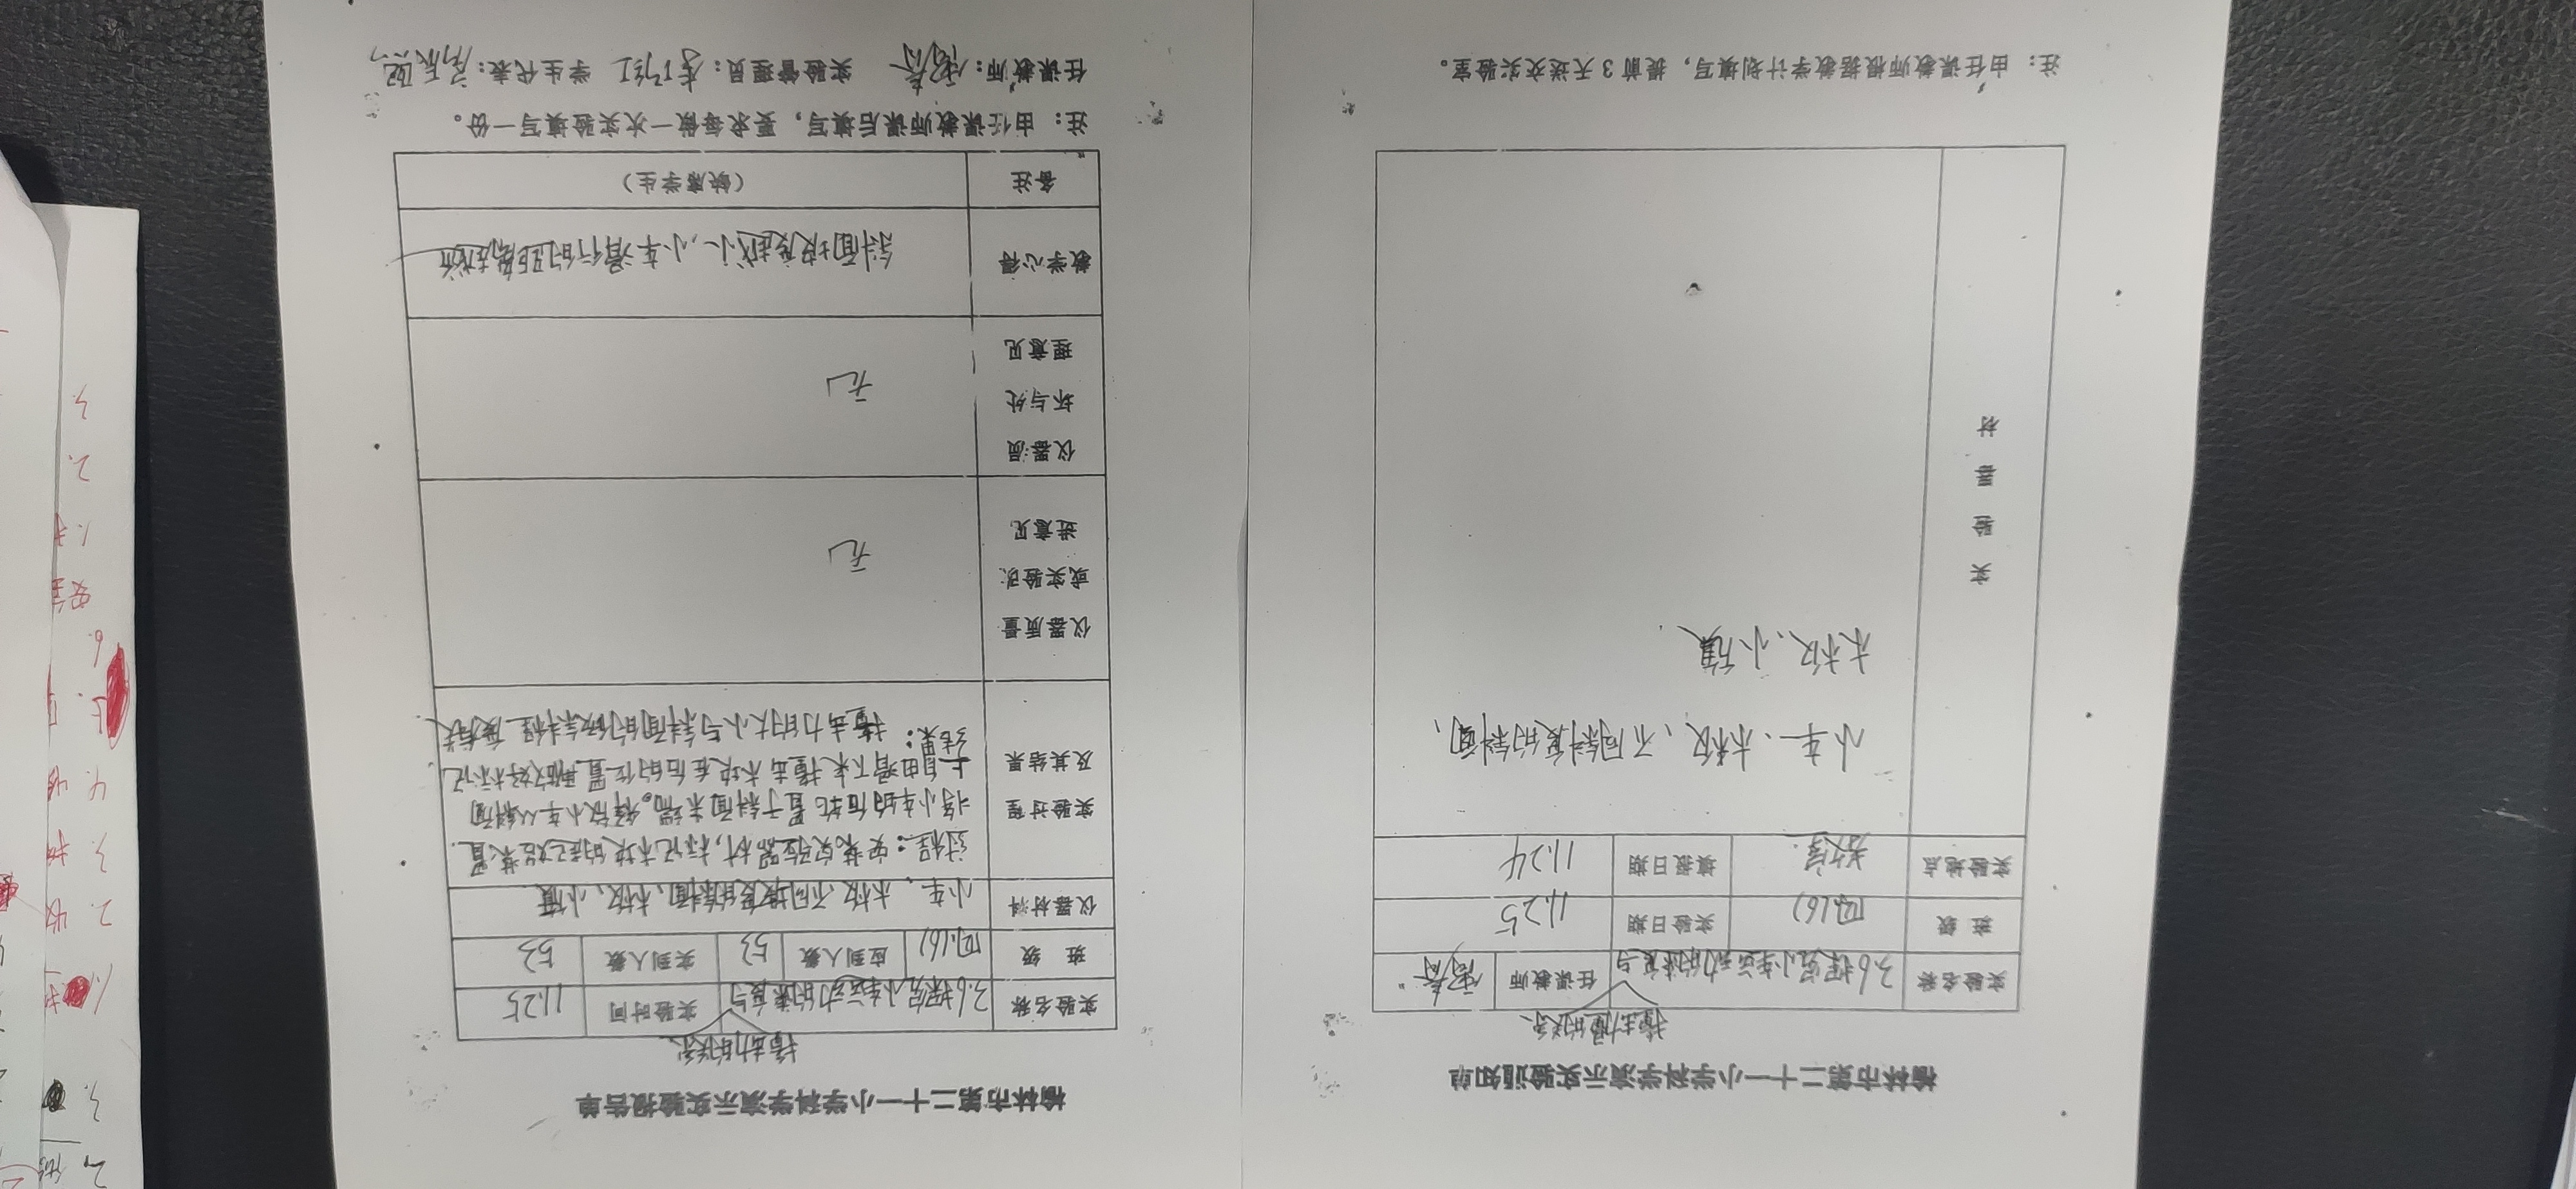 榆林市第二十一小学科学演示实验通知单
撞击力的关系
实验名称 3.6探究小车运动的速度与 任课教师
班 级 四(6) 实验日期 11.25
实验地点 教室 填报日期 11.24
实验器材 小车、木板、不同斜度的斜面、
木板、小旗.
注：由任课教师根据教学计划填写，提前3天送交实验室。
榆林市第二十一小学科学演示实验报告单
撞击力的关系
实验名称 3.6探究小车运动的速度与 实验时间 11.25
班 级 四(6) 应到人数 53 实到人数 53
仪器材料 小车、木板、不同坡度的斜面、木板、小旗
实验过程及其结果
过程：安装实验器材，标记木块的起始装置.
将小车的后轮置于斜面末端。释放小车从斜面
上自由滑下来撞击木块在后的位置再做好标记
结果：撞击力的大小与斜面的倾斜程度有关
仪器质量或实验改进意见 无
仪器损坏与处理意见 无
教学心得 斜面坡度越小，小车滑行的距离越近
备注 （缺席学生）
注：由任课教师课后填写，要求每做一次实验填写一份。
任课教师： 实验管理员： 学生代表：
3.
2.
1.
安全
6.
4.
3.
2.
1.
3.
2.